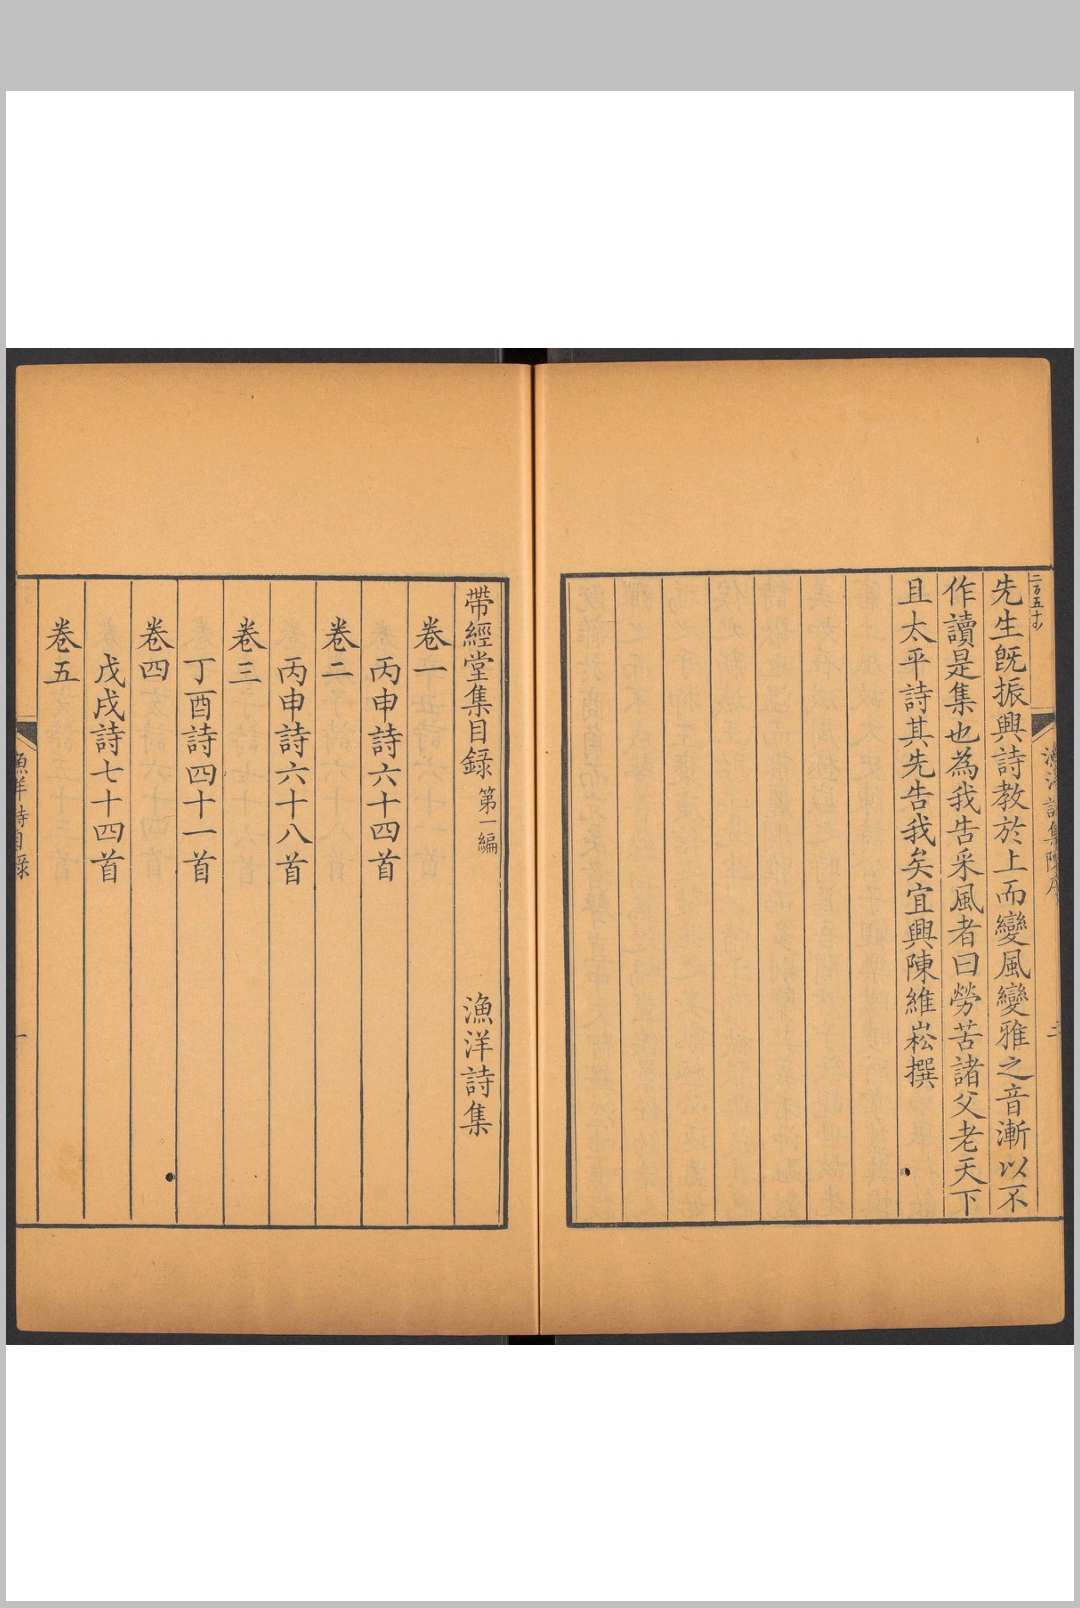 先生旣振興詩教於上而變風變雅之音漸以不
作讀是集也為我告采風者曰勞苦諸父老天下
且太平詩其先告我矣宜興陳維崧撰
帶經堂集目錄 第一編 漁洋詩集
卷一
丙申詩六十四首
卷二
丙申詩六十八首
卷三
丁酉詩四十一首
卷四
戊戌詩七十四首
卷五
漁洋詩目錄
一